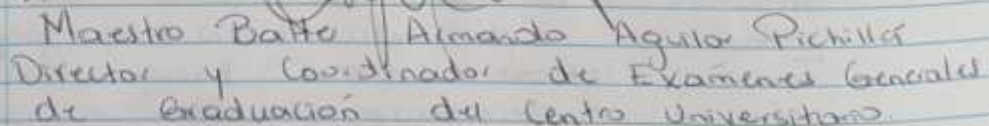 Maestro Batte Almando Aguilar Pichillá
Director y Coordinador de Examenes Generales
de Graduación del Centro Universitario